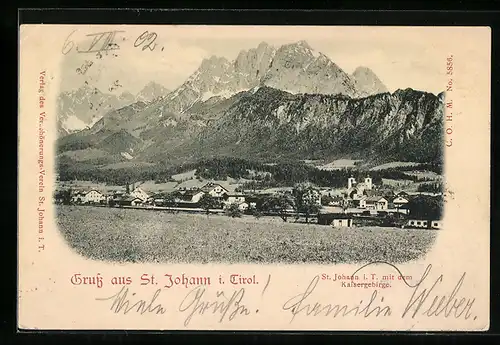 6/VIII. 02.
Verlag des Verschönerungs-Verein St. Johann i. T.
C. O. H. M. No. 3856.
Gruß aus St. Johann i. Tirol.
St. Johann i. T. mit dem
Kaisergebirge.
Viele Grüße! Familie Weber.